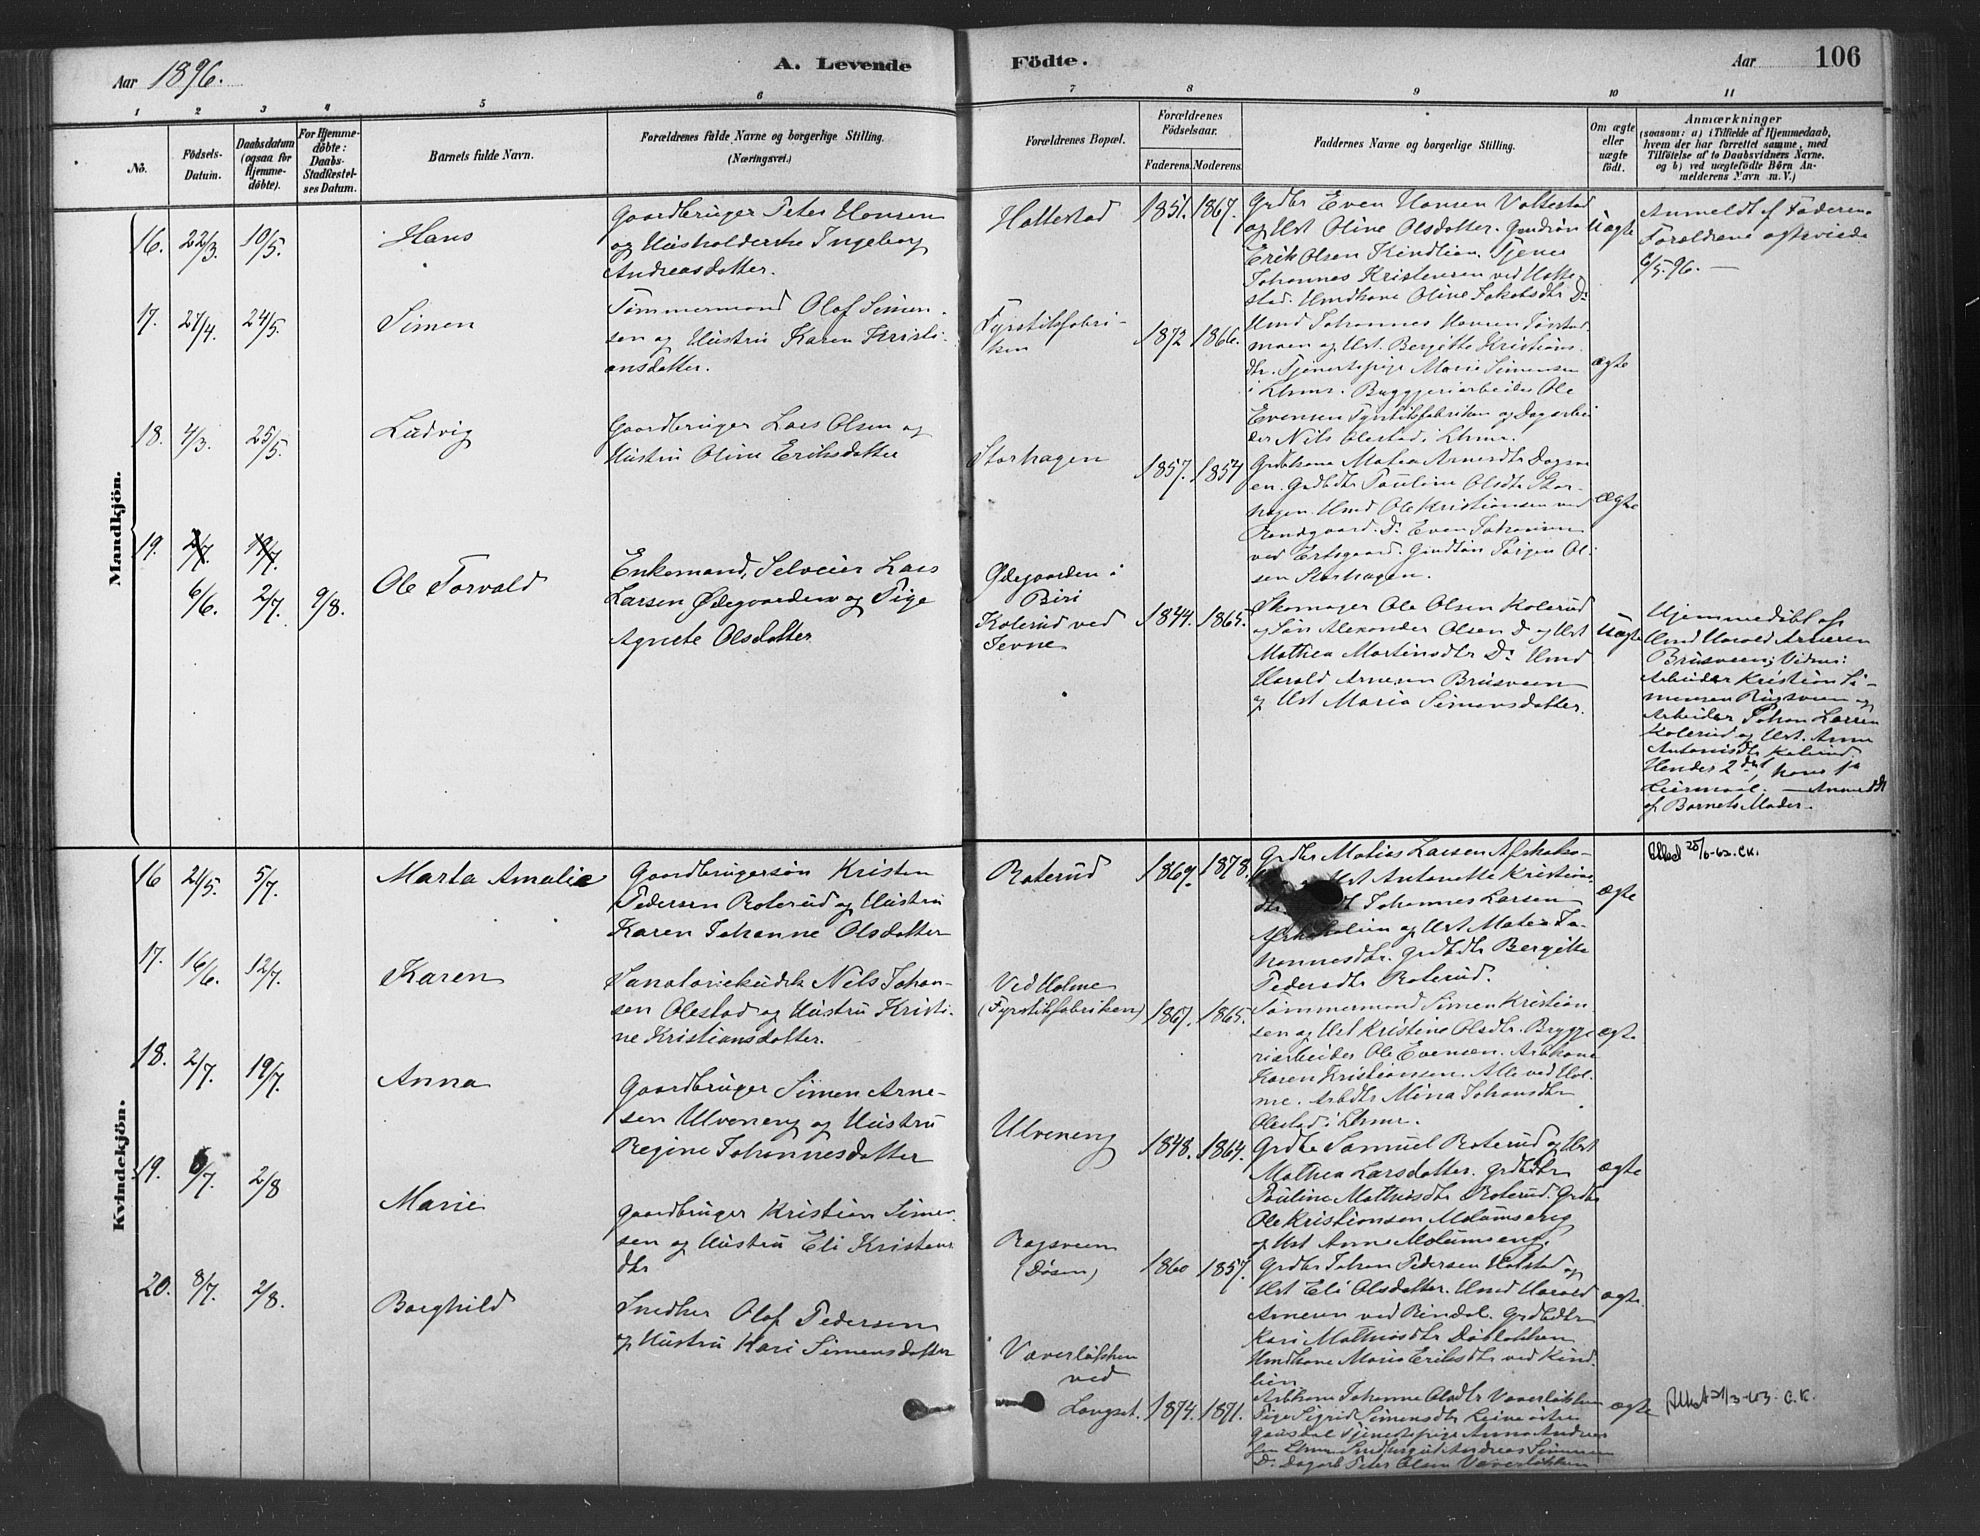 Aar 1896.
A. Levende
Födte.
Aar
106
1 2 3 4 5 6 7 8 9 10 11
No.
Födsels-
Datum.
Daabsdatum
(ogsaa for
Hjemme-
döbte).
For Hjemme-
döbte:
Daabs-
Stadfæstel-
ses Datum.
Barnets fulde Navn.
Forældrenes fulde Navne og borgerlige Stilling.
(Næringsvei.)
Forældrenes Bopæl.
Forældrenes
Födselsaar.
Faderens. Moderens.
Faddernes Navne og borgerlige Stilling.
Om ægte
eller
uægte
födt.
Anmærkninger
(saasom: a) i Tilfælde af Hjemmedaab,
hvem der har forrettet samme, med
Tilföielse af to Daabsvidners Navne,
og b) ved uægtefödte Börn An-
melderens Navn m. V.)
Mandkjön.
16. 22/3. 10/5. Hans
Gaardbruger Peter Hansen
og Husholderske Ingeborg
Andreasdatter.
Hattestad 1851. 1867.
Grdbr Even Hansen
og Hst Oline Olsdatter. Gmdsøn
Erik Olsen Kindlien. Tjener
Johannes Kristensen ved Hatte-
stad. Hmdkone Oline Jakobsdtr Ds
Uægte
Anmeldt af Faderen.
Forældrene egteviede
6/5 96. —
17. 27/4. 24/5. Simen
Tømmermand Olaf Simen-
sen og Hustru Karen Kristi-
ansdatter.
Fyrstikfabri-
ken 1872 1866.
Hmd Johannes Hansen
moen og Hst. Bergitte Kristians-
dtr. Tjenestepige Marie Simensen
i Lhmr. Bryggeriarbeider Ole
Evensen Fyrstikfabriken og Dagarbei
der Nils Olestad i Lhmr.
ægte
18. 4/3. 25/5. Ludvig
Gaardbruger Lars Olsen og
Hustru Oline Eriksdatter
Storhagen 1857. 1857
Grdbkone Matea Arnesdtr
en. Grdbdtr Pauline Olsdtr Stor-
hagen. Hmd Ole Kristiansen ved
Ds Even Johansen
ved Gmdsøn Jørgen Ol-
sen Storhagen.
ægte
19. 2/7 19/7.
6/6. 2/7. 9/8. Ole Torvald
Enkemand, Selveier Lars
Larsen Ødegaarden og Pige
Agnete Olsdatter
Ødegaarden i
Biri
Kolerud ved
Jevne 1844. 1865.
Skomager Ole Olsen Kolerud
og Søn Alexander Olsen Ds og Hst
Mathea Martinsdtr Ds Hmd
Harald Arnesen Brusveen
og Hst Maria Simensdatter.
Uægte
Hjemmedøbt af
Hmd Harald Arnesen
Brusveen; Vidner:
Arbeider Kristian Si-
mensen og
Arbeider Johan Larsen
Kolerud og Hst. Anne
Antonisdtr Kolerud.
Hendes 2det, hans 1ste
Leiermaal. — Anmeldt
af Barnets Moder.
Kvindekjön.
16 21/5. 5/7. Marta Amalie
Gaardbrugersøn Kristen
Pedersen Roterud og Hustru
Karen Johanne Olsdatter
Roterud 1869. 1878.
Grdbr Matias Larsen
Hst Antonette Kristians-
dtr Johannes Larsen
og Hst Matea Jo-
hannesdtr. Grdbdtr Bergitte
Pedersdtr Roterud.
ægte
25/6-63. C.K.
17. 16/6. 12/7. Karen
Sanatoriekudsk Nils Johan-
sen Olestad og Hustru Kristi-
ne Kristiansdatter.
Ved Holme
(Fyrstikfabriken) 1867. 1865.
Tømmermand Simen Kristian
sen og Hst Kristine Olsdtr. Brygge
riarbeider Ole Evensen. Arbkone
Karen Kristiansen. Alle ved Hol-
me. Arbdtr Mina Johansdtr
Olestad i Lhmr.
ægte
18. 2/7. 19/7. Anna
Gaardbruger Simen Arne-
sen Ulveneng og Hustru
Regine Johannesdatter
Ulveneng 1848. 1864.
Grdbr Samuel Roterud og Hst
Mathea Larsdatter. Grdbdtr
Pauline Mathisdtr Roterud. Grdbr
Ole Kristiansen
og Hst Anne
ægte
19. 6/7. 2/8 Marie
Gaardbruger Kristian Simen-
sen og Hustru Eli Kristens
dtr
(Døsen) 1860 1857.
Grdbr Johan Pedersen og
Hst Eli Olsdatter. Hmd Harald
Arnesen ved Rindal. Grdbdtr
Kari Mathisdtr
Hmdkone Maria Eriksdtr ved Kind-
lien
ægte
20. 8/7. 2/8. Borghild
Snedker Olaf Pedersen
og Hustru Kari Simensdatter
Væverløkken
ved
Langset. 1874. 1871.
Arbkone Johanne Olsdtr Væverløkken
Pige Sigrid Simensdtr
Gausdal Tjenestepige Anna Andrea
sen Lhmr Andreas Simensen
Ds. Dagarb Peter Olsen Væverløkken
ægte
21/3-63. C.K.